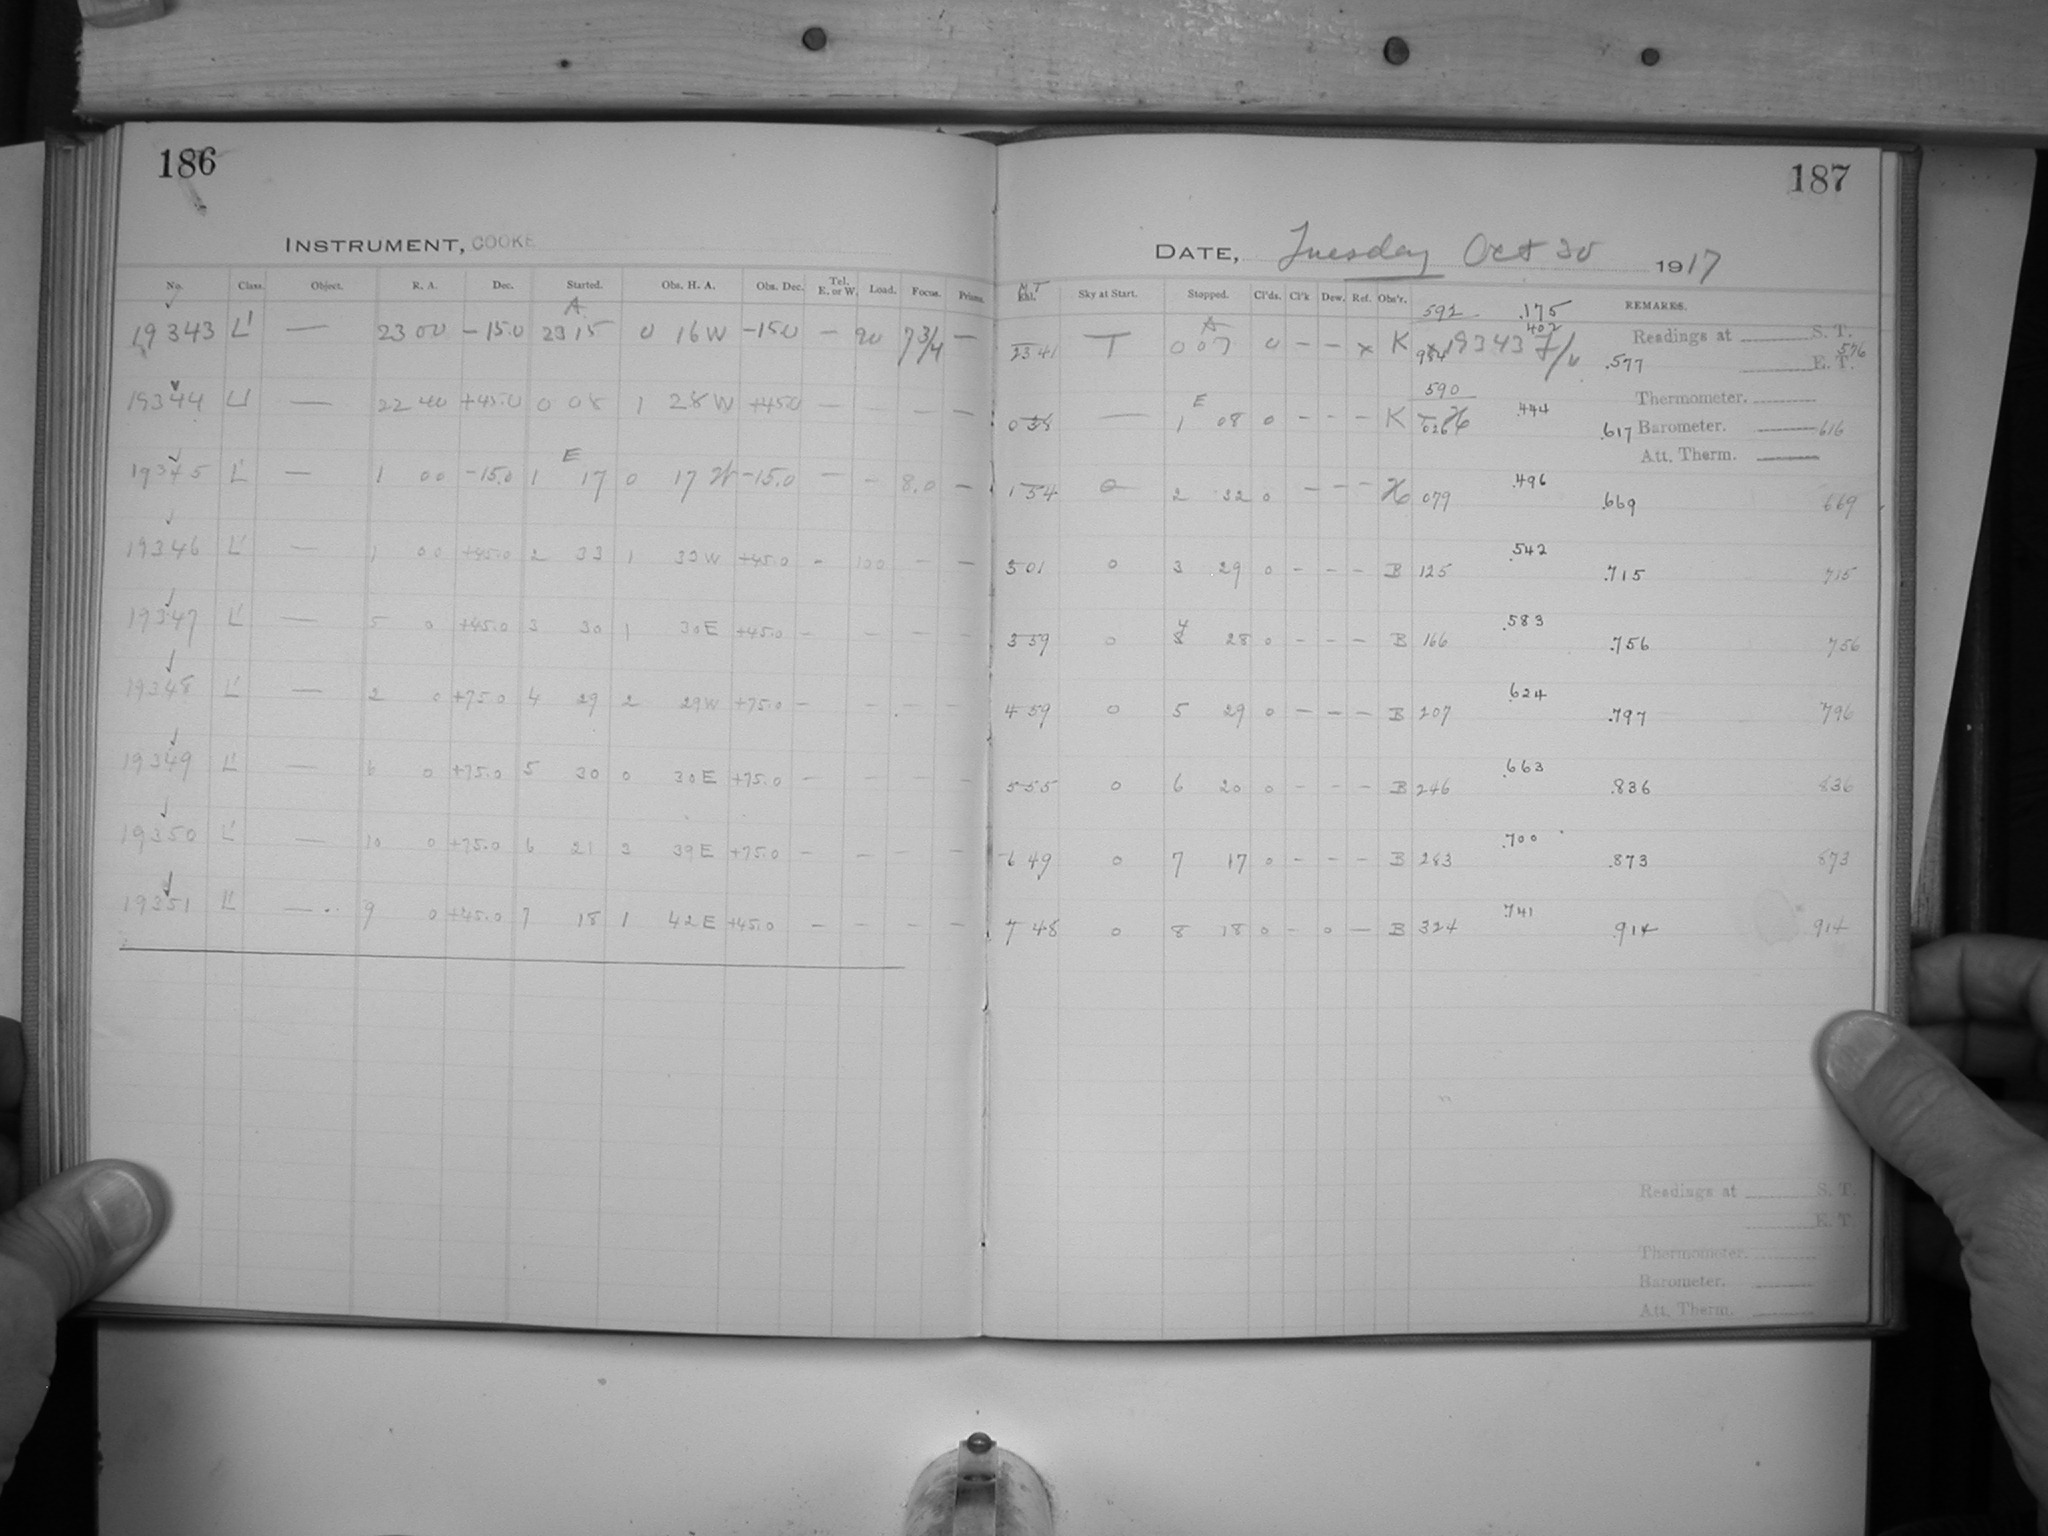 186
INSTRUMENT, COOKE
No. Class. Object. R. A. Dec. Started. Obs. H. A. Obs. Dec. Tel. E. or W. Load. Focus. Prisms.
A
19343 L' — 23 00 -15.0 23 15 0 16 W -15.0 — 90 7 3/4 —
19344 L' — 22 40 +45.0 0 08 1 28 W +45.0 — - - —
E
19345 L' — 1 00 -15.0 1 17 0 17 W -15.0 — - 8.0 —
19346 L' — 1 00 +45.0 2 33 1 33 W +45.0 - 100 — —
19347 L' — 5 0 +45.0 3 30 1 30 E +45.0 — - - -
19348 L' — 2 0 +75.0 4 29 2 29 W +75.0 — - - -
19349 L' — 6 0 +75.0 5 30 0 30 E +75.0 — - - -
19350 L' — 10 0 +75.0 6 21 3 39 E +75.0 — - - -
19351 L' — 9 0 +45.0 7 18 1 42 E +45.0 — - - -
187
DATE, Tuesday Oct 30 1917
M T
Sky at Start. Stopped. Cl'ds. Cl'k Dew. Ref. Obs'r. REMARKS.
592 .175
A .402
23 41 T 0 07 0 — — x K 984 x 19343 .577 576
Readings at S. T.
E. T.
590
E
0 38 — 1 08 0 - - - K 026 .444 .617 616
Thermometer.
Barometer.
Att. Therm.
1 54 0 2 32 0 - - - H 079 .496 .669 669
3 01 0 3 29 0 - - - B 125 .542 .715 715
3 59 0 4 28 0 - - - B 166 .583 .756 756
4 59 0 5 29 0 - - - B 207 .624 .797 796
5 55 0 6 20 0 - - - B 246 .663 .836 836
6 49 0 7 17 0 - - - B 283 .700 .873 873
7 48 0 8 18 0 - 0 — B 324 .741 .914 914
Readings at S. T.
E. T.
Thermometer.
Barometer.
Att. Therm.